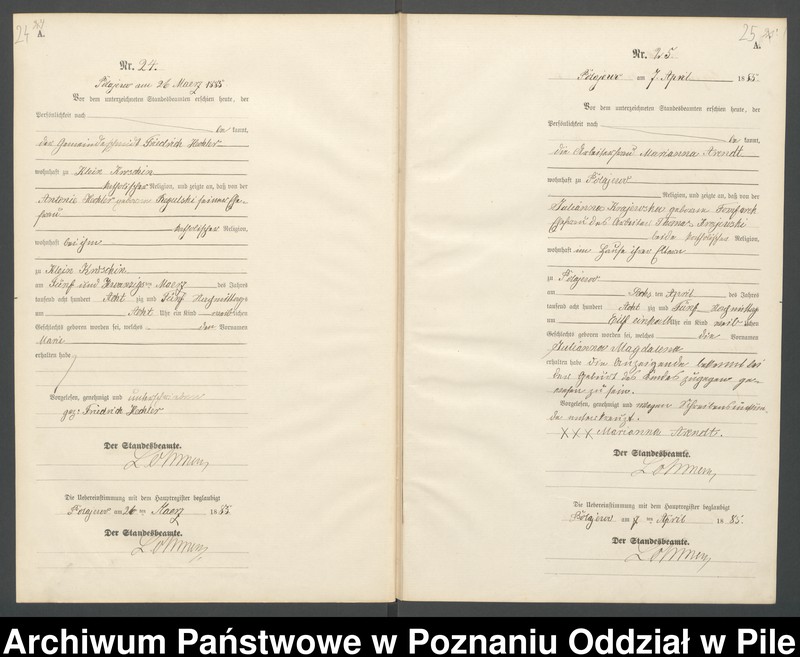 24
A.
Nr. 24.
Polajewo am 26 Maerz 1885
Vor dem unterzeichneten Standesbeamten erschien heute, der
Persönlichkeit nach
be kannt,
der Gemeinde Friedrich
wohnhaft zu Klein Kroschin
katholischer Religion, und zeigte an, daß von der
Antonie geborenen seiner Ehe-
frau
katholischer Religion,
wohnhaft bei ihm
zu Klein Kroschin
am Fünf und zwanzigsten Maerz des Jahres
tausend acht hundert Acht zig und Fünf Nachmittags
um Acht Uhr ein Kind weib lichen
Geschlechts geboren worden sei, welches den Vornamen
Marie
erhalten habe
Vorgelesen, genehmigt und unterschrieben
gez: Friedrich
Der Standesbeamte.
Die Uebereinstimmung mit dem Hauptregister beglaubigt
Polajewo am 26 ten Maerz 1885.
Der Standesbeamte.
25
A.
Nr. 25
Polajewo am 7 April 1885.
Vor dem unterzeichneten Standesbeamten erschien heute, der
Persönlichkeit nach
be kannt,
die Arbeiterfrau Marianna Arendt
wohnhaft zu Polajewo
Religion, und zeigte an, daß von der
Julianna Krajewska geborenen
Ehefrau des Arbeiter Thomas Krajewski
beide katholischer Religion,
wohnhaft im Hause ihrer Eltern
zu Polajewo
am Sechs ten April des Jahres
tausend acht hundert Acht zig und Fünf Nachmittags
um Elf einhalb Uhr ein Kind weib lichen
Geschlechts geboren worden sei, welches die Vornamen
Julianna Magdalena
erhalten habe Die Anzeigende bekennt bei
der Geburt des Kindes zugegen ge-
wesen zu sein.
Vorgelesen, genehmigt und wegen
XXX Marianna Arendt.
Der Standesbeamte.
Die Uebereinstimmung mit dem Hauptregister beglaubigt
Polajewo am 7 ten April 1885.
Der Standesbeamte.
Archiwum Państwowe w Poznaniu Oddział w Pile